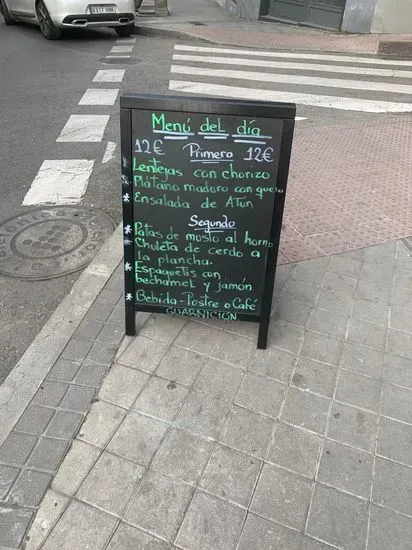 Menú del día
12€ Primero 12€
Lentejas con chorizo
Plátano maduro con queso
* Ensalada de Atún
Segundo
* Patas de muslo al horno
* Chuleta de cerdo a
la plancha.
* Espaguetis con
bechamel y jamón
* Bebida - Postre o Café
GUARNICIÓN